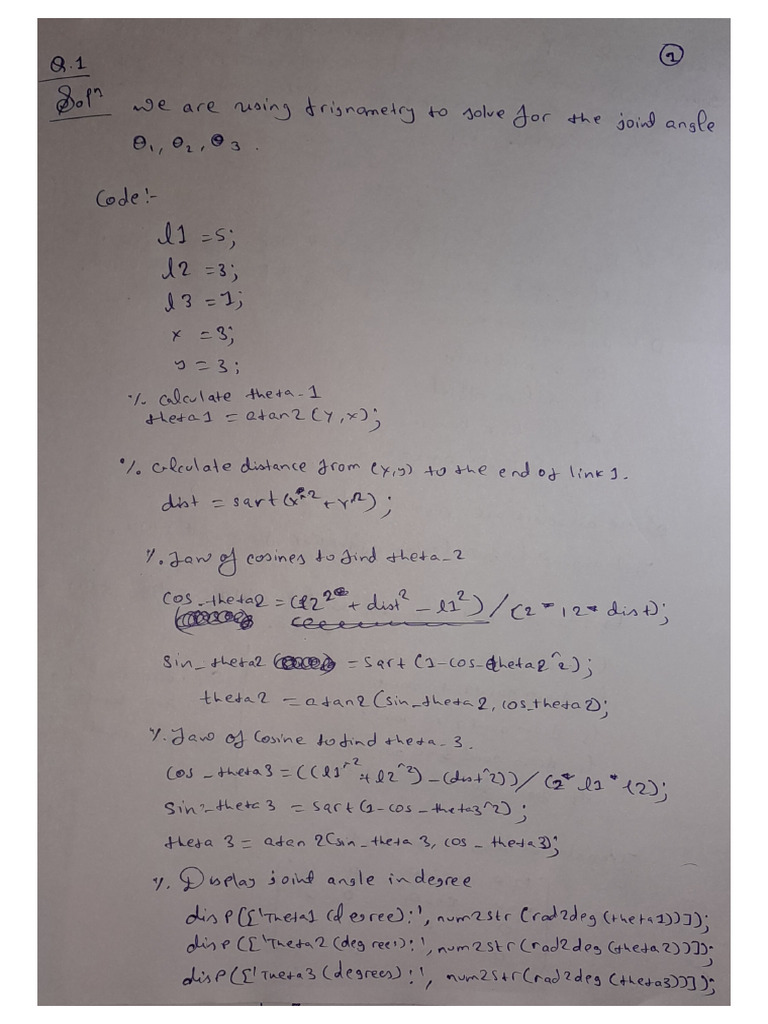 Q.1
1
Solⁿ we are using trignametry to solve for the joint angle
θ1, θ2, θ3.
Code:-
l1 = 5;
l2 = 3;
l3 = 1;
x = 3;
y = 3;
% calculate theta-1
theta1 = atan2(y,x);
% calculate distance from (x,y) to the end of link 1.
dist = sqrt(x^2 + y^2);
% Law of cosines to find theta_2
cos_theta2 = (l2² + dist² - l1²) / (2 * l2 * dist);
sin_theta2 = sqrt(1-cos_theta2^2);
theta2 = atan2(sin_theta2, cos_theta2);
% Law of cosine to find theta-3.
cos_theta3 = ((l1^2 + l2^2) - (dist^2)) / (2* l1 * l2);
sin_theta3 = sqrt(1-cos_theta3^2);
theta3 = atan2(sin_theta3, cos_theta3);
% Display joint angle in degree
disp(['Theta1 (degree):', num2str(rad2deg(theta1))]);
disp(['Theta2 (degrees):', num2str(rad2deg(theta2))]);
disp(['Theta3 (degrees):', num2str(rad2deg(theta3))]);